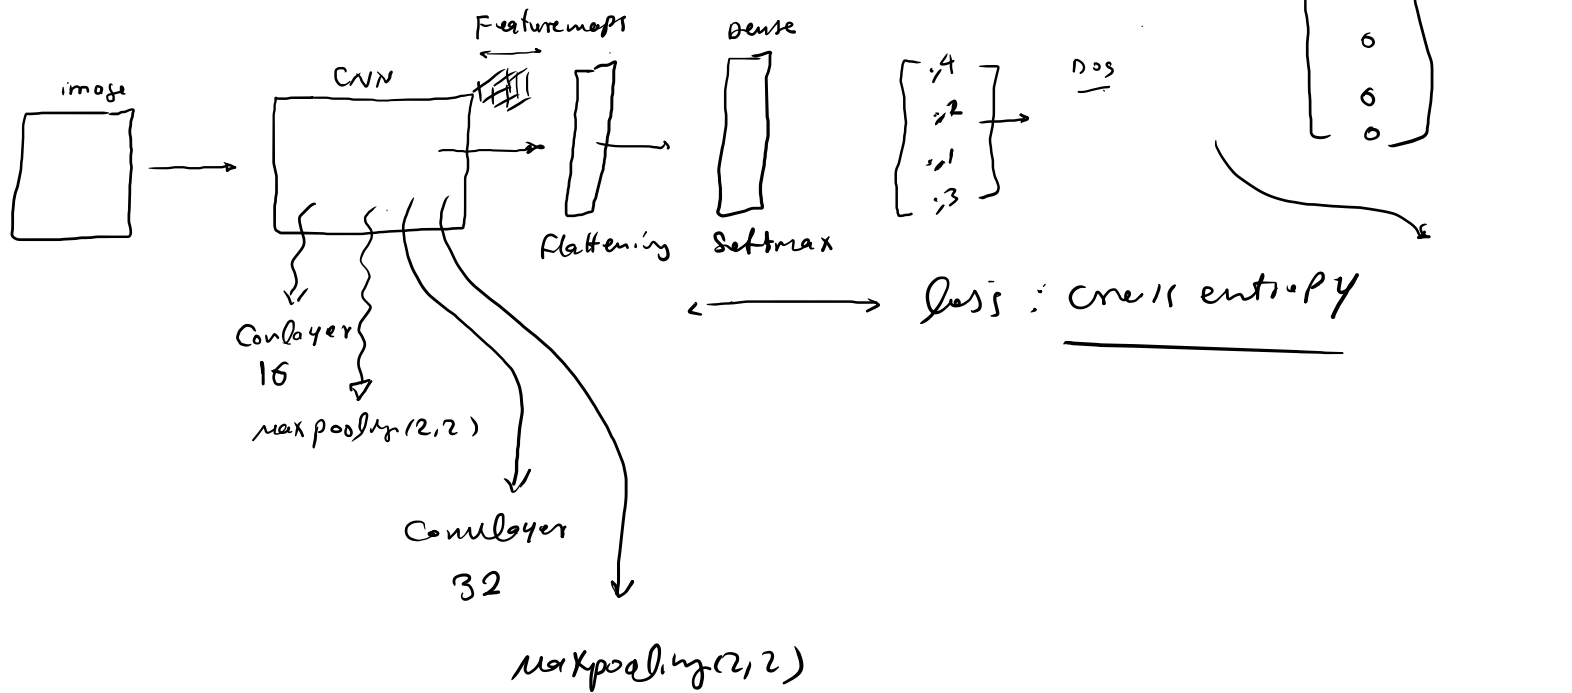 image
CNN
Featuremaps
Dense
.4
.2
.1
.3
Dog
0
0
0
Flattening
Softmax
loss : cross entropy
Convlayer
16
maxpooling(2,2)
Convlayer
32
maxpooling(2,2)